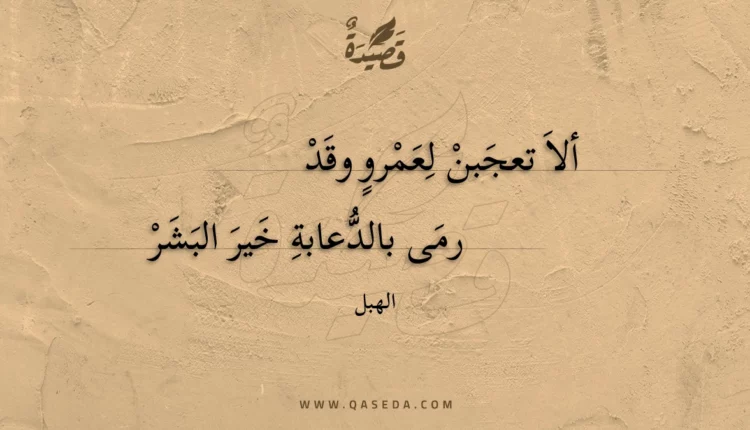 قَصِيدَةٌ
ألاَ تعجَبنْ لِعَمْروٍ وقَدْ
رمَى بالدُّعابةِ خَيرَ البَشَرْ
الهبل
WWW.QASEDA.COM